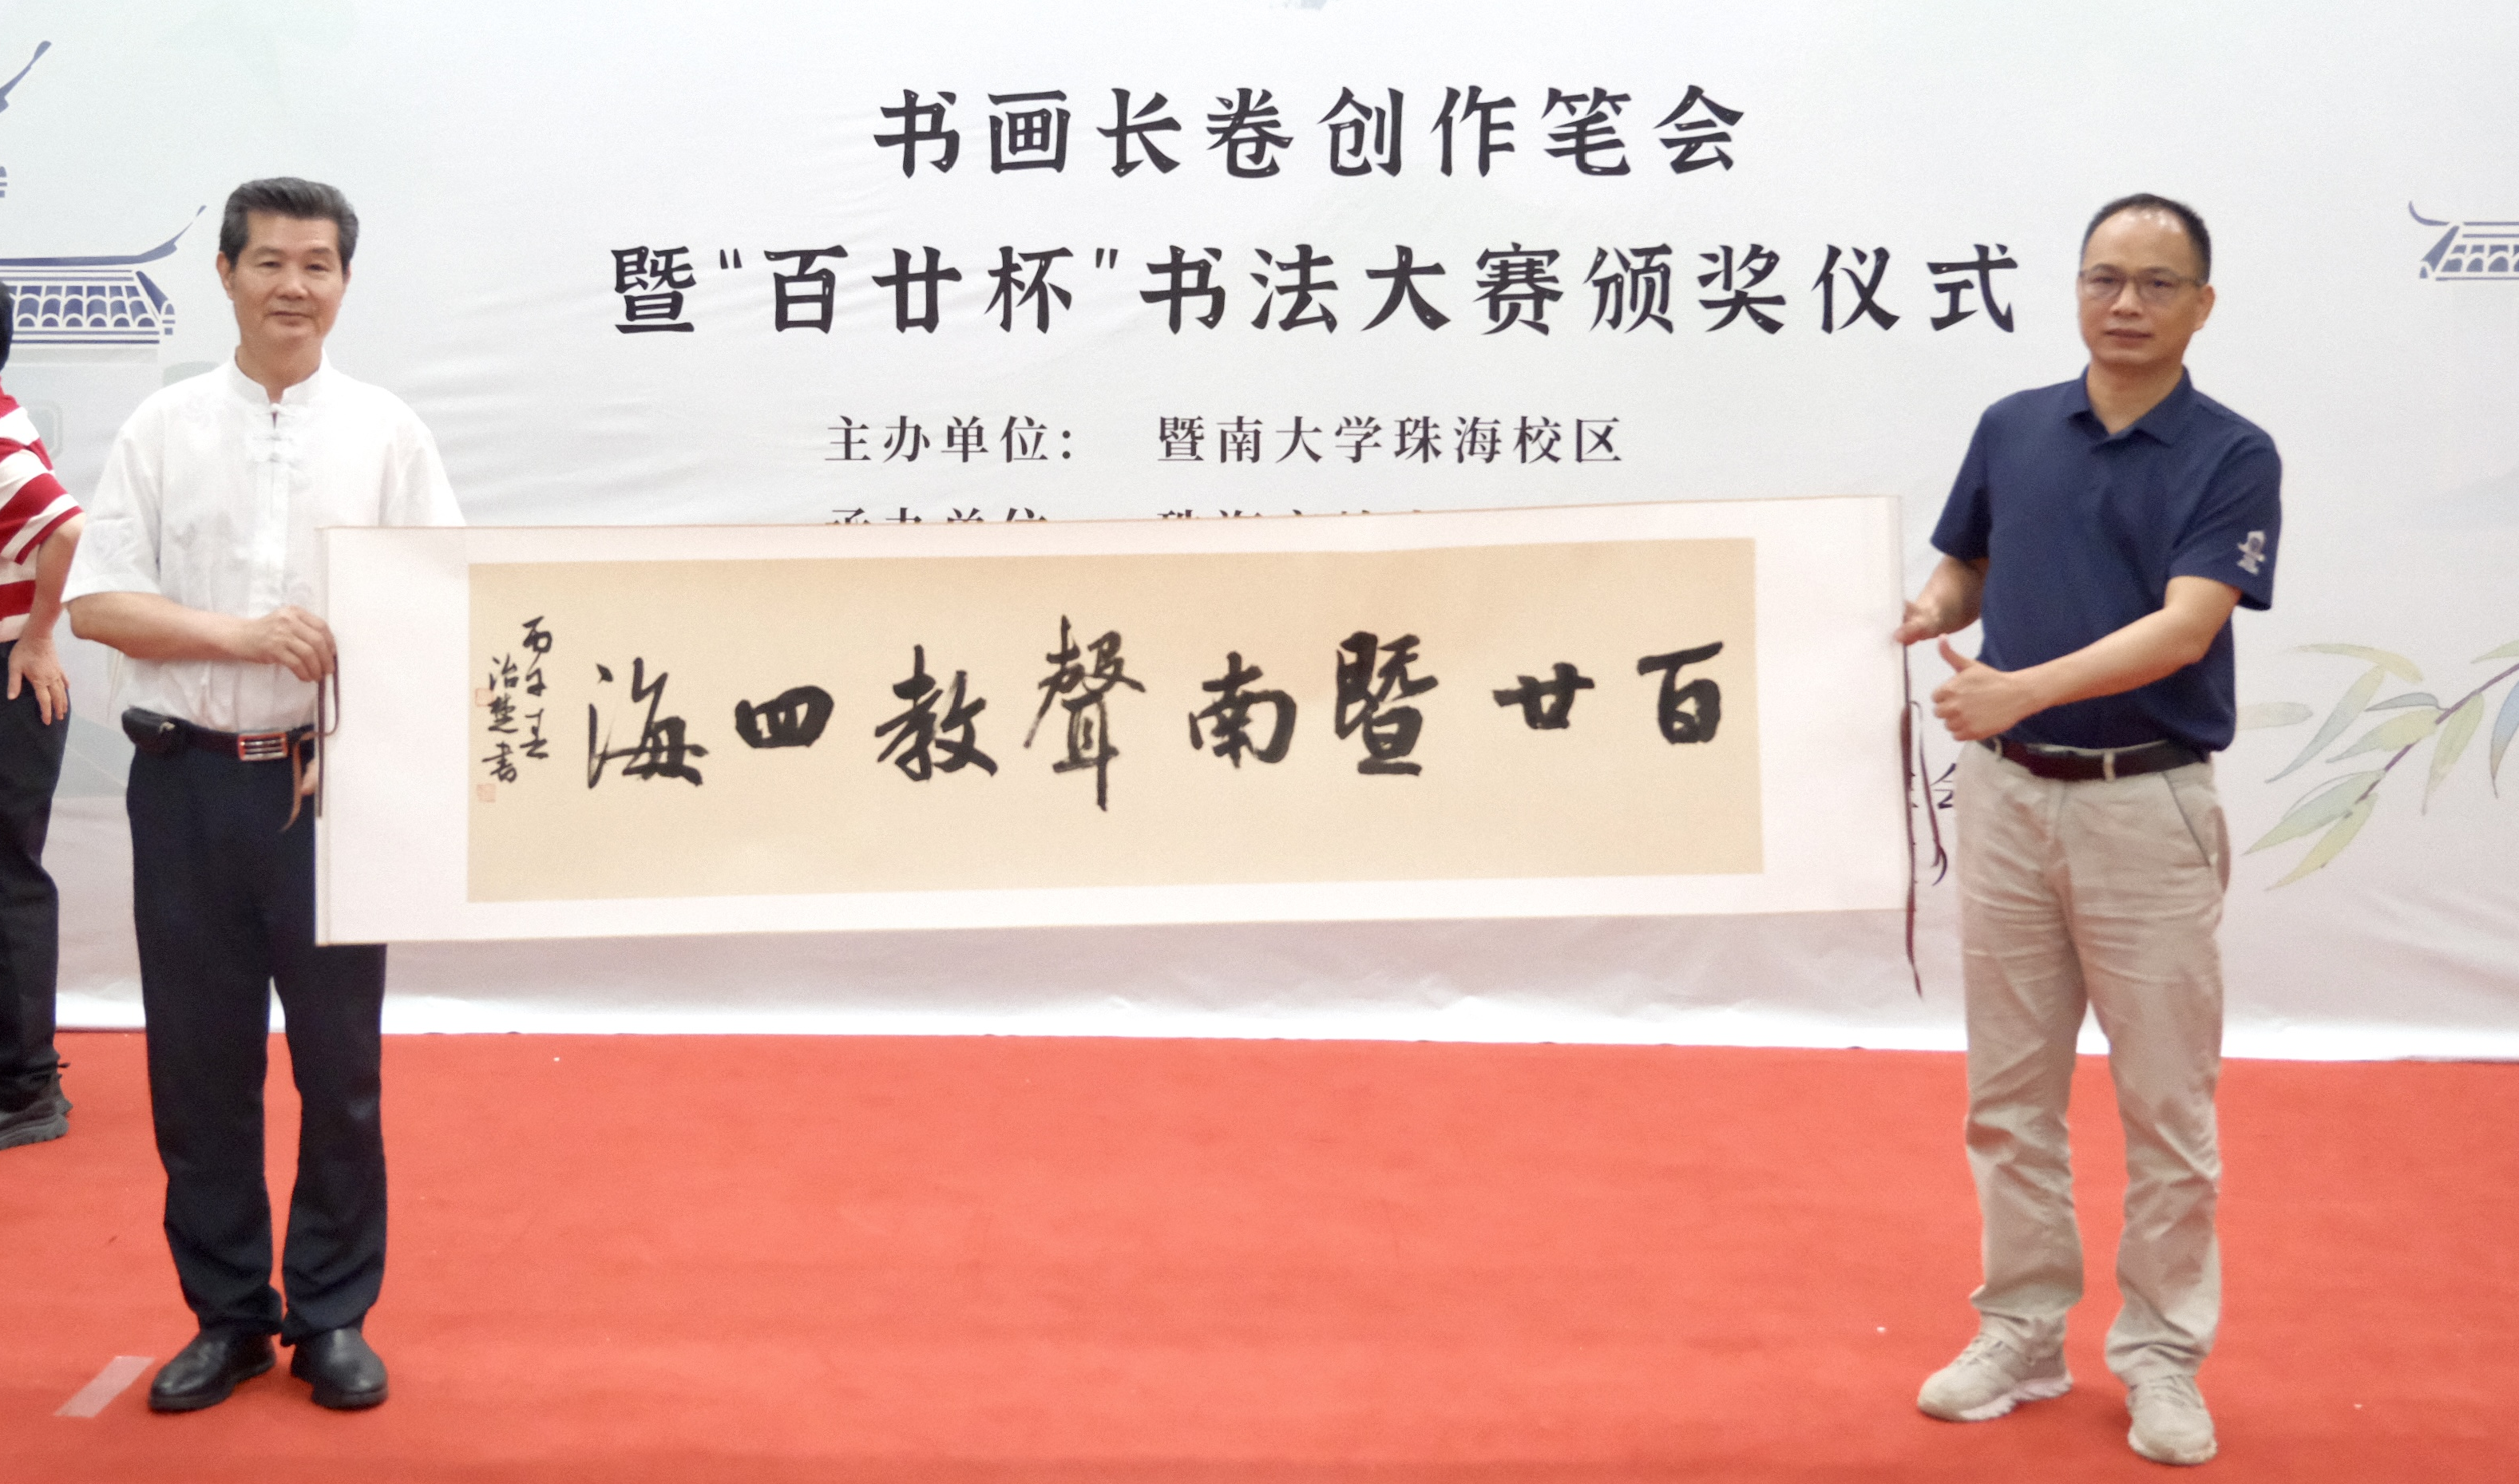 书画长卷创作笔会
暨“百廿杯”书法大赛颁奖仪式
主办单位： 暨南大学珠海校区
承办单位 珠海
百廿暨南聲教四海
丙午春
治楚書